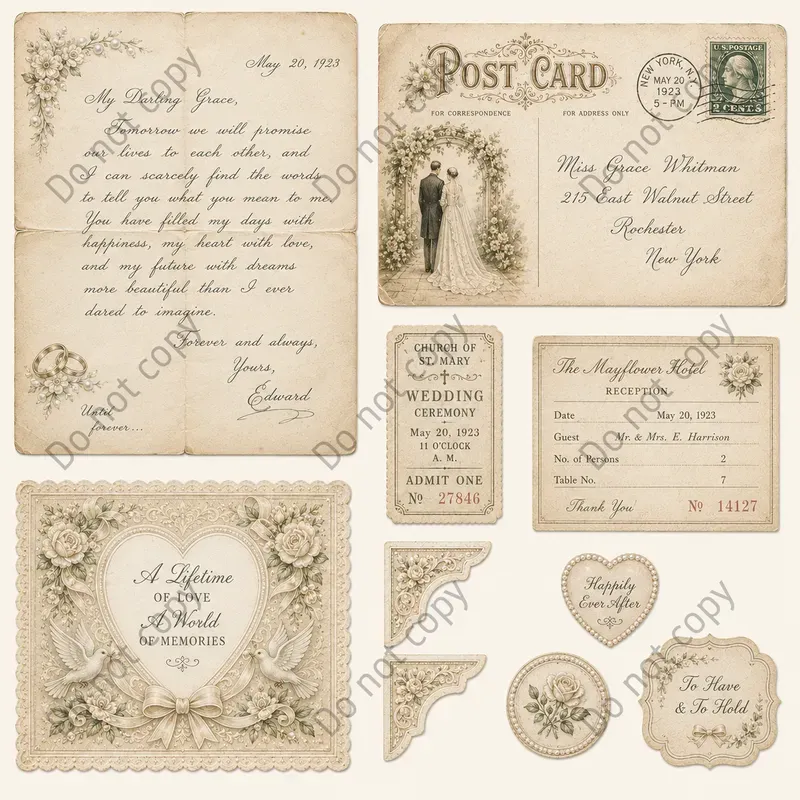 May 20, 1923
My Darling Grace,
Tomorrow we will promise
our lives to each other, and
I can scarcely find the words
to tell you what you mean to me.
You have filled my days with
happiness, my heart with love,
and my future with dreams
more beautiful than I ever
dared to imagine.
Forever and always,
Yours,
Edward
Until
forever...
POST CARD
FOR CORRESPONDENCE
FOR ADDRESS ONLY
NEW YORK, N.Y.
MAY 20
1923
5 - PM
U.S. POSTAGE
2 CENTS
Miss Grace Whitman
215 East Walnut Street
Rochester
New York
CHURCH OF
ST. MARY
WEDDING
CEREMONY
May 20, 1923
11 O'CLOCK
A. M.
ADMIT ONE
Nº 27846
The Mayflower Hotel
RECEPTION
Date May 20, 1923
Guest Mr. & Mrs. E. Harrison
No. of Persons 2
Table No. 7
Thank You Nº 14127
A Lifetime
OF LOVE
A World
OF MEMORIES
Happily
Ever After
To Have
& To Hold
Do not copy
Do not copy
Do not copy
Do not copy
Do not copy
Do not copy
Do not copy
Do not copy
Do not copy